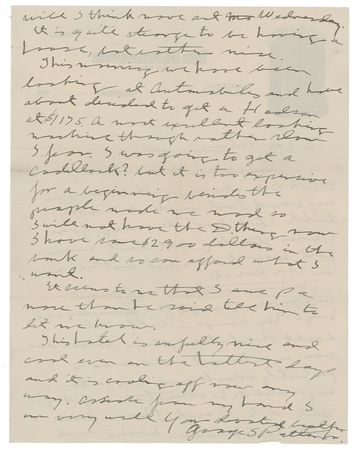 will I think move out Wednesday.
It is quite strange to be having a
house, but rather nice.
This morning we have been
looking at Automobiles and have
about decided to get a Hudson
at $1175 A most exellent looking
machine though rather slow
I fear. I was going to get a
Cadillack? but it is too expensive
for a beginning besides the
people made me mad so
I will not have the D thing now
I have some $2900 dollars in the
bank and so can afford what I
want.
It seems to me that I owe Pa
more than he said tell him to
let me know.
This hotel is awfully nice and
cool even on the hottest days
and it is cooling off now any
way. Aside from my hand I
am very well Your devoted
George S Patton Jr.